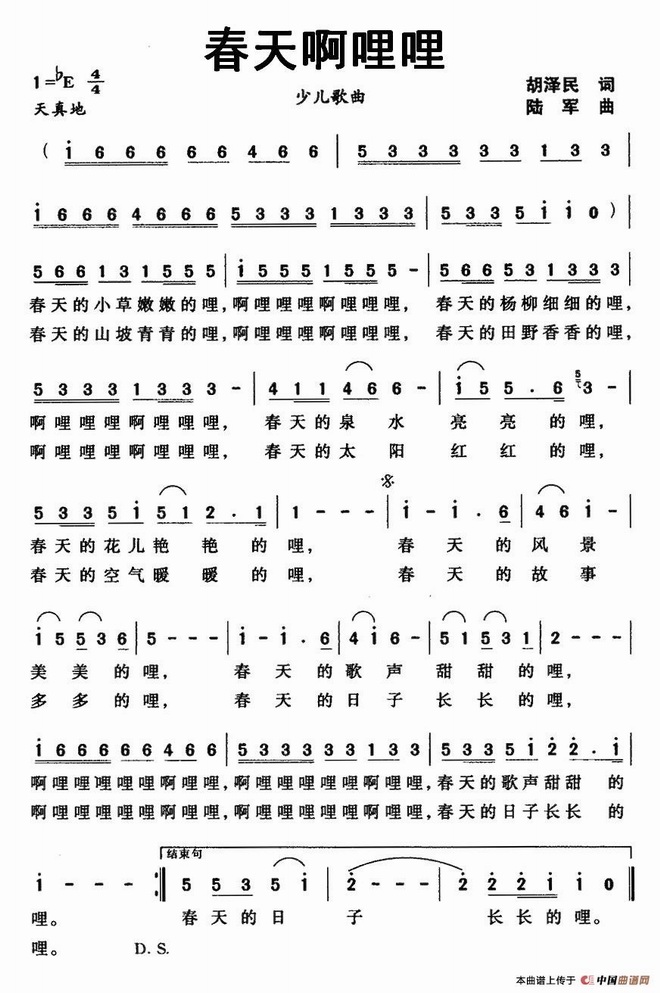 春天啊哩哩
1=♭E 4/4
胡泽民 词
天真地
少儿歌曲
陆 军 曲
( i 6 6 6 6 6 6 4 6 6 | 5 3 3 3 3 3 3 1 3 3 |
i 6 6 6 4 6 6 6 5 3 3 3 1 3 3 3 | 5 3 3 5 i i 0 ) |
5 6 6 1 3 1 5 5 5 | i 5 5 5 1 5 5 5 - | 5 6 6 5 3 1 3 3 3 |
春天的小草嫩嫩的哩,啊哩哩哩啊哩哩哩, 春天的杨柳细细的哩,
春天的山坡青青的哩,啊哩哩哩啊哩哩哩, 春天的田野香香的哩,
5 3 3 3 1 3 3 3 - | 4 1 1 4 6 6 - | i 5 5 . 6 5 3 - |
啊哩哩哩啊哩哩哩, 春天的泉水 亮亮的哩,
啊哩哩哩啊哩哩哩, 春天的太阳 红红的哩,
5 3 3 5 i 5 1 2 . 1 | 1 - - - | i - i . 6 | 4 6 i - |
春天的花儿艳艳的哩, 春天的风景
春天的空气暖暖的哩, 春天的故事
i 5 5 3 6 | 5 - - - | i - i . 6 | 4 i 6 - | 5 1 5 3 1 | 2 - - - |
美美的哩, 春天的歌声甜甜的哩,
多多的哩, 春天的日子长长的哩,
i 6 6 6 6 6 6 4 6 6 | 5 3 3 3 3 3 3 1 3 3 | 5 3 3 5 i 2 2 . i |
啊哩哩哩哩哩哩啊哩哩,啊哩哩哩哩哩哩啊哩哩,春天的歌声甜甜的
啊哩哩哩哩哩哩啊哩哩,啊哩哩哩哩哩哩啊哩哩,春天的日子长长的
结束句
i - - - :| 5 5 3 5 i | 2 - - - | 2 2 2 i i 0 |
哩。 春天的日子 长长的哩。
哩。 D.S.
本曲谱上传于 中国曲谱网